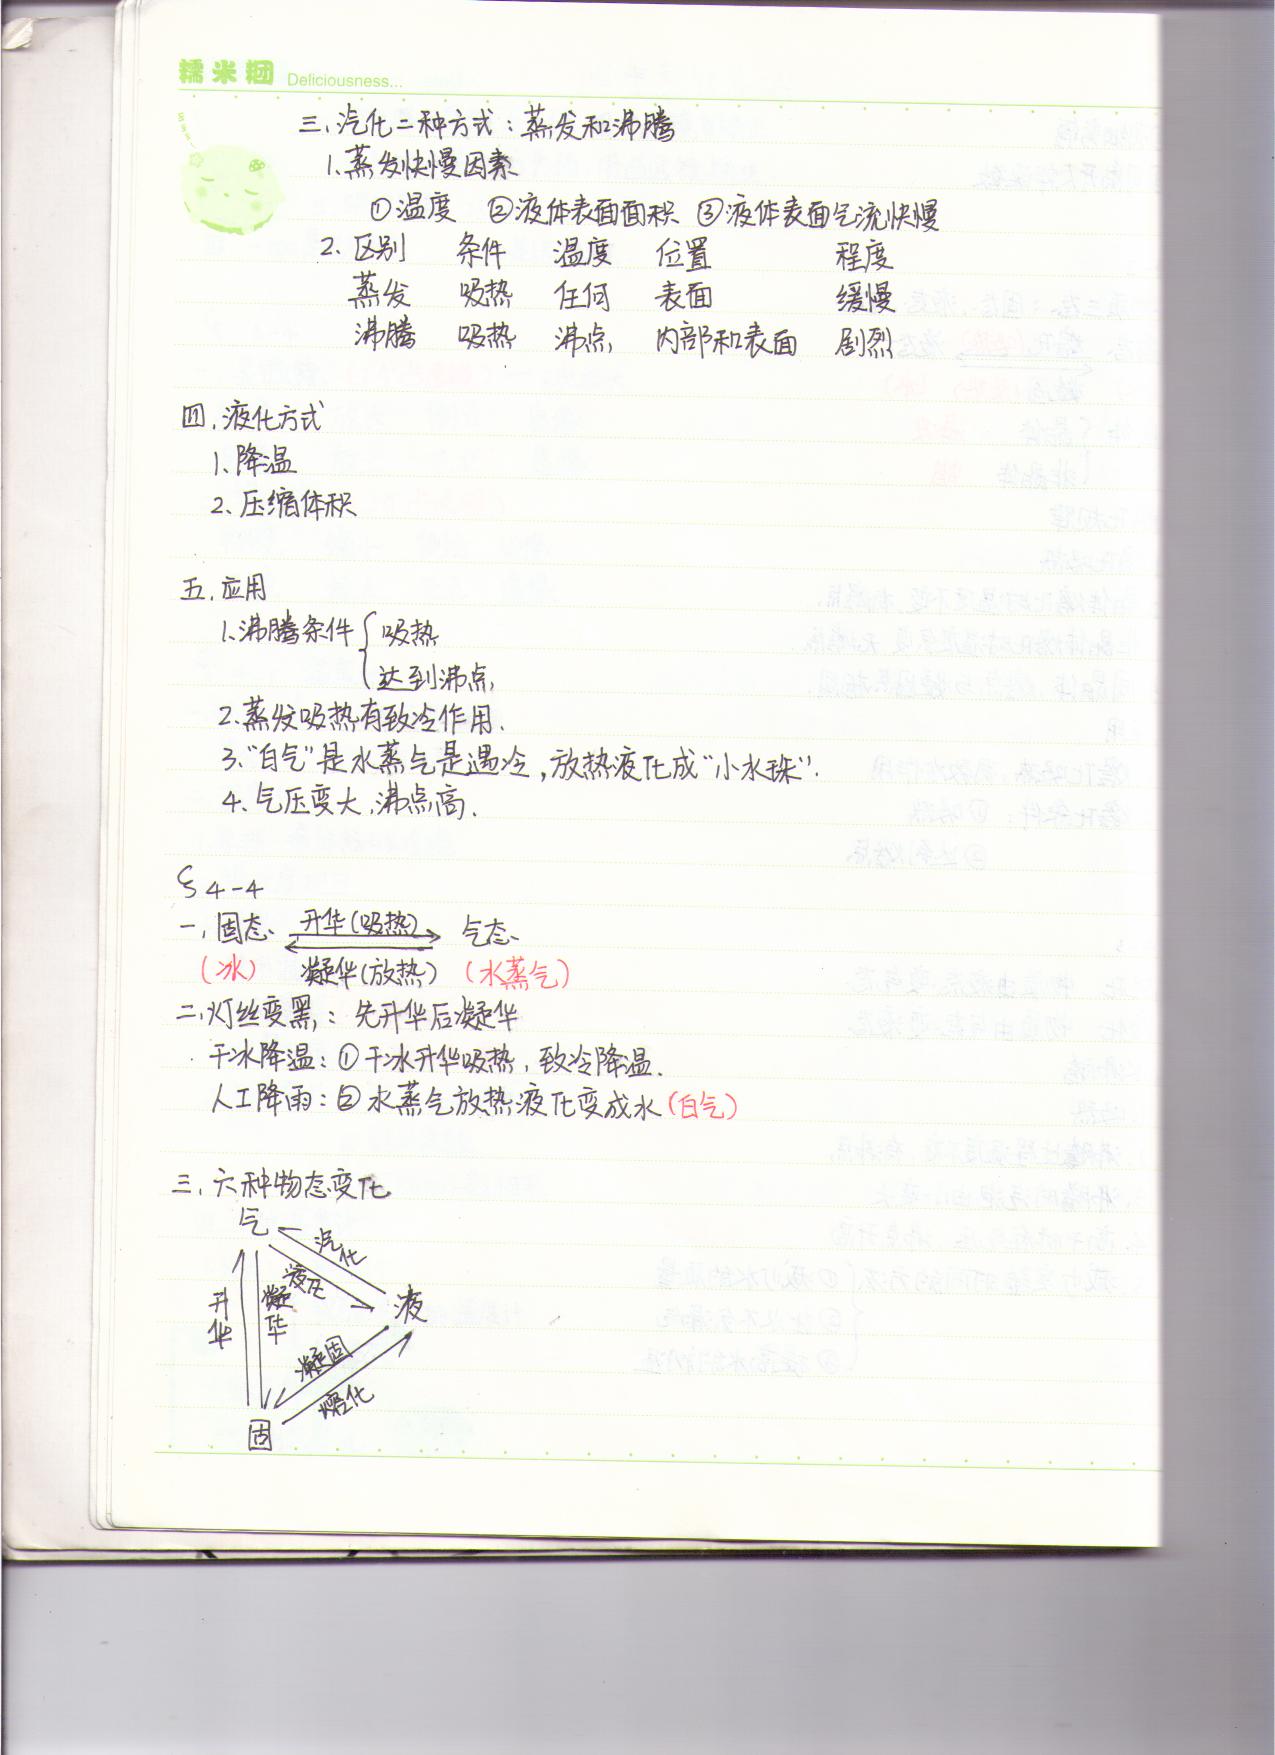 糯米团 Deliciousness...
三.汽化二种方式:蒸发和沸腾
1.蒸发快慢因素
①温度 ②液体表面面积 ③液体表面气流快慢
2.区别 条件 温度 位置 程度
蒸发 吸热 任何 表面 缓慢
沸腾 吸热 沸点 内部和表面 剧烈
四.液化方式
1.降温
2.压缩体积
五.应用
1.沸腾条件 { 吸热
达到沸点
2.蒸发吸热有致冷作用.
3."白气"是水蒸气是遇冷,放热液化成"小水珠".
4.气压变大,沸点高.
§4-4
一.固态 升华(吸热) 气态
(冰) 凝华(放热) (水蒸气)
二.灯丝变黑:先升华后凝华
干冰降温:①干冰升华吸热,致冷降温.
人工降雨:②水蒸气放热液化变成水(白气)
三.六种物态变化
气
汽化
液化
升华
凝华
液
凝固
熔化
固